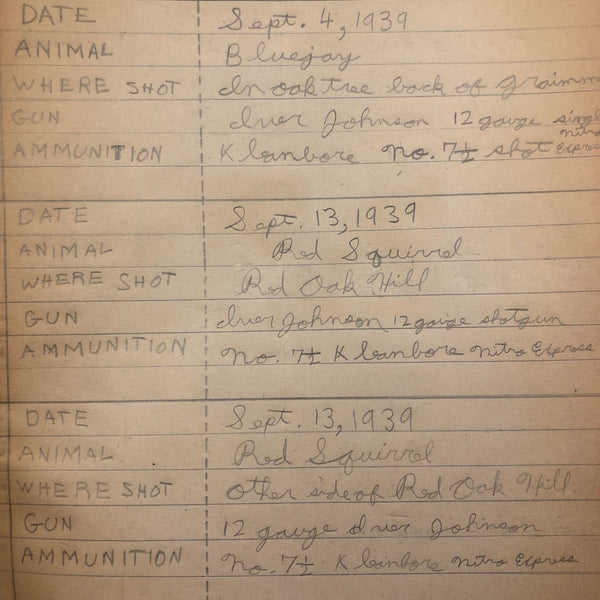 DATE Sept. 4, 1939
ANIMAL Bluejay
WHERE SHOT In oak tree back of
GUN Iver Johnson 12 gauge
AMMUNITION Kleanbore No. 7½ shot Nitro Express
DATE Sept. 13, 1939
ANIMAL Red Squirrel
WHERE SHOT Red Oak Hill
GUN Iver Johnson 12 gauge shotgun
AMMUNITION No. 7½ Kleanbore Nitro Express
DATE Sept. 13, 1939
ANIMAL Red Squirrel
WHERE SHOT Other side of Red Oak Hill
GUN 12 gauge Iver Johnson
AMMUNITION No. 7½ Kleanbore Nitro Express